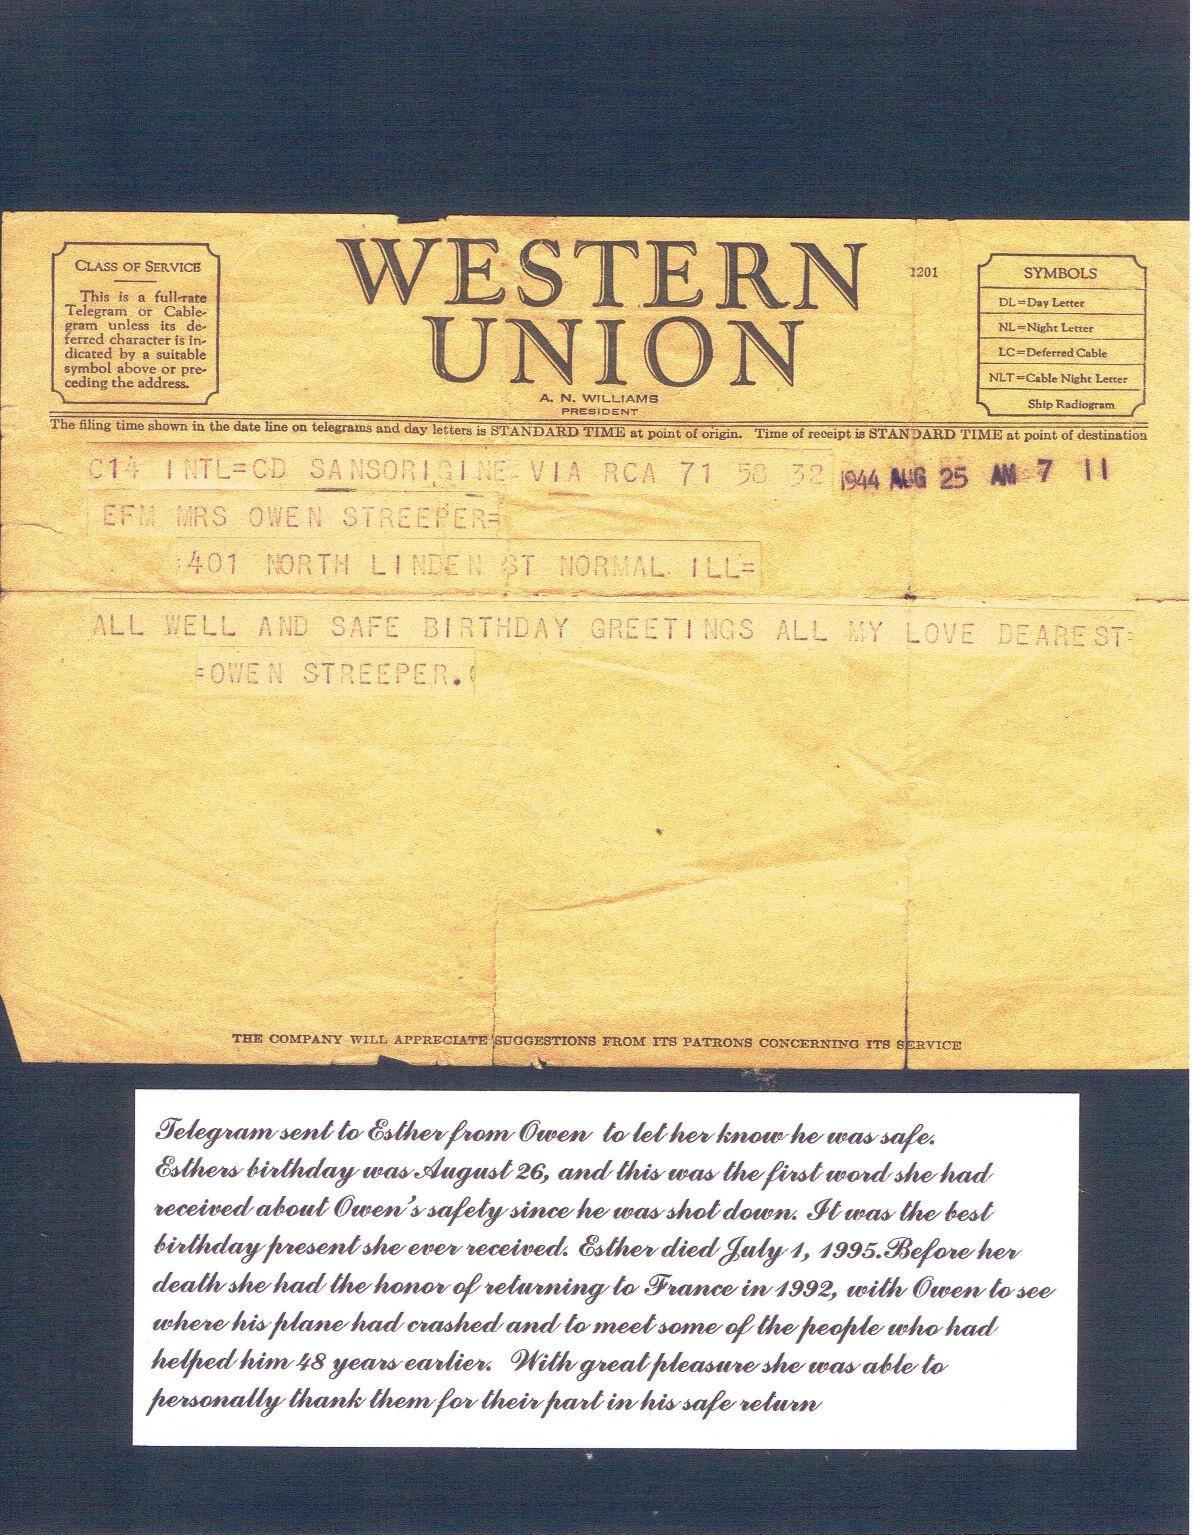 CLASS OF SERVICE
This is a full-rate
Telegram or Cable-
gram unless its de-
ferred character is in-
dicated by a suitable
symbol above or pre-
ceding the address.
WESTERN
UNION
A. N. WILLIAMS
PRESIDENT
1201
SYMBOLS
DL=Day Letter
NL=Night Letter
LC=Deferred Cable
NLT=Cable Night Letter
Ship Radiogram
The filing time shown in the date line on telegrams and day letters is STANDARD TIME at point of origin. Time of receipt is STANDARD TIME at point of destination
C14 INTL=CD SANSORIGINE VIA RCA 71 58 32 1944 AUG 25 AM 7 11
EFM MRS OWEN STREEPER=
:401 NORTH LINDEN ST NORMAL ILL=
ALL WELL AND SAFE BIRTHDAY GREETINGS ALL MY LOVE DEAREST=
=OWEN STREEPER.
THE COMPANY WILL APPRECIATE SUGGESTIONS FROM ITS PATRONS CONCERNING ITS SERVICE
Telegram sent to Esther from Owen to let her know he was safe.
Esthers birthday was August 26, and this was the first word she had
received about Owen's safety since he was shot down. It was the best
birthday present she ever received. Esther died July 1, 1995. Before her
death she had the honor of returning to France in 1992, with Owen to see
where his plane had crashed and to meet some of the people who had
helped him 48 years earlier. With great pleasure she was able to
personally thank them for their part in his safe return